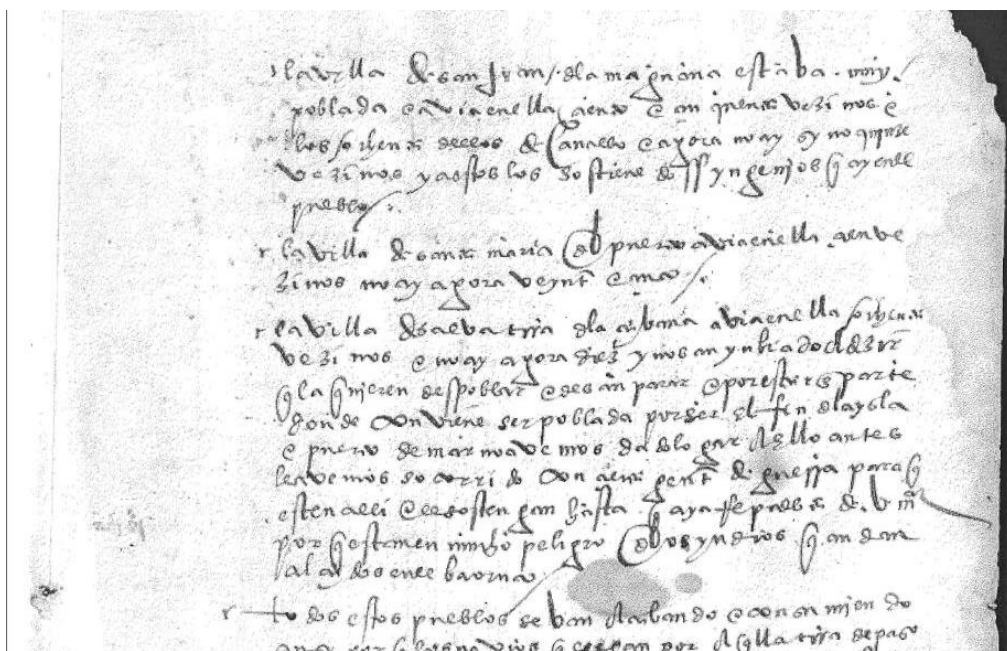 la villa de san Juan dela maguana estaba muy
poblada e avia en ella çiento e çinquenta vezinos e
los sesenta dellos de Cavallo e agora no ay sy no quinze
vezinos y a estos los sostiene dos yngenios q ay en el
pueblo
la villa de santa maria del puerto avia en ella çient ve
zinos no ay agora veynte e çinco
la villa de salvatierra dela çabana avia en ella sesenta
vezinos e no ay agora diez y nos an ynbiado a dezir
q la quieren despoblar e desanparar e por estar en parte
donde conviene ser poblada por ser el fin dela ysla
e puerto de mar no avemos dado lugar a ello antes
le avemos socorrido con çierta gente de guerra para q
esten alli e la sostengan hasta q aya respuesta de v m
por q estan en mucho peligro de los yndios q andan
alçados en el baoruco
todos estos pueblos se van acabando e consumiendo
por q los navios q por aquella tierra de paso